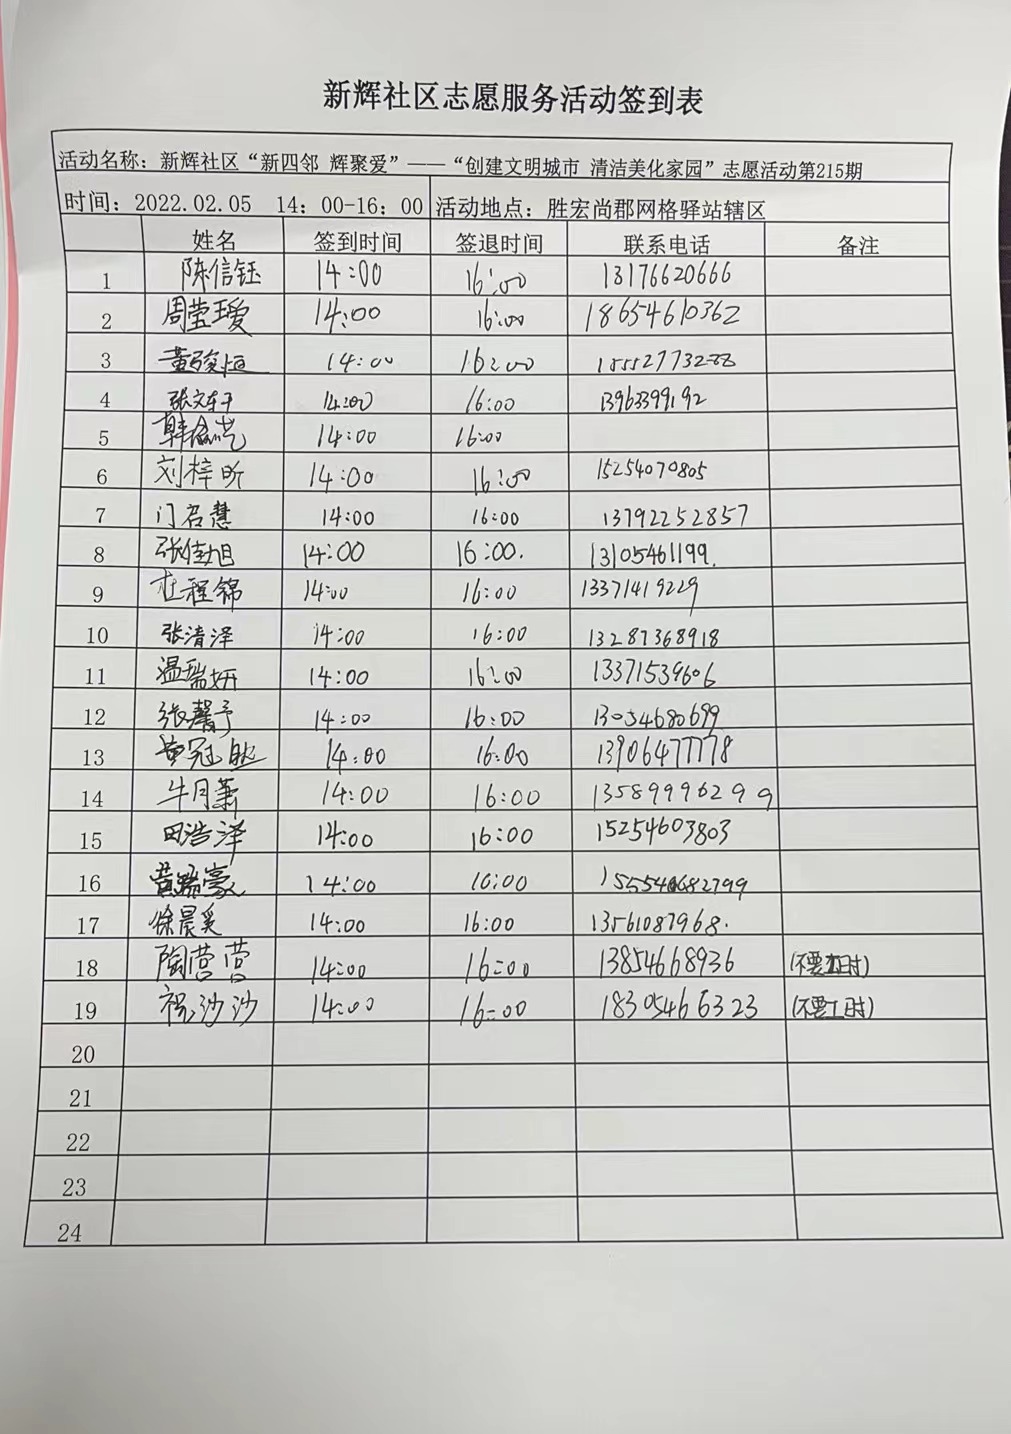 新辉社区志愿服务活动签到表
活动名称：新辉社区“新四邻 辉聚爱”——“创建文明城市 清洁美化家园”志愿活动第215期
时间：2022.02.05 14：00-16：00 活动地点：胜宏尚郡网格驿站辖区
姓名 签到时间 签退时间 联系电话 备注
1 陈信钰 14:00 16:00 13176620666
2 周莹瑷 14:00 16:00 18654610362
3 14:00 16:00 15552773288
4 14:00 16:00 13963399192
5 14:00 16:00
6 刘梓昕 14:00 16:00 15254070805
7 门召慧 14:00 16:00 13792252857
8 张佳旭 14:00 16:00. 13105461199.
9 杜程锦 14:00 16:00 13371419229
10 张清泽 14:00 16:00 13287368918
11 温瑞妍 14:00 16:00 13371539606
12 张馨予 14:00 16:00 13054680699
13 黄冠 14:00 16:00 13906477778
14 牛月萧 14:00 16:00 13589996299
15 田浩泽 14:00 16:00 15254603803
16 14:00 16:00
17 徐晨奚 14:00 16:00 13561087968.
18 陶营营 14:00 16:00 13854668936 (不要工时)
19 祝沙沙 14:00 16:00 18305466323 (不要工时)
20
21
22
23
24